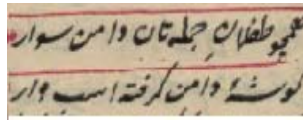 همچو طفلان جمله تان دامن سوار
گوشهٔ دامن گرفته اسب وار